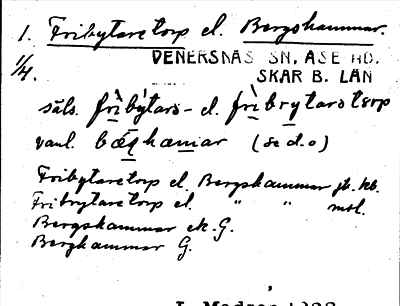 1. Fribytaretorp el. Bergshammar.
1/4.
VENERSNÄS SN, ÅSE HD.
SKAR B. LÄN
säls. frìbýtarə- el. frìbrytarstorp
vanl. bæ̀rhamar (se d.o)
Fribytaretorp el. Bergshammar jb. kb.
Fribrytaretorp el. " " mtl.
Bergshammar ek. G.
Berghammar G.